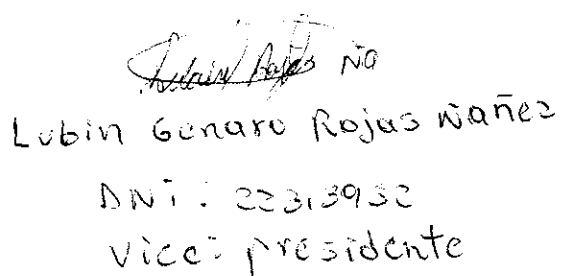 Rojas Ña
Lubin Genaro Rojas Ñañez
DNI: 22313932
Vice: presidente